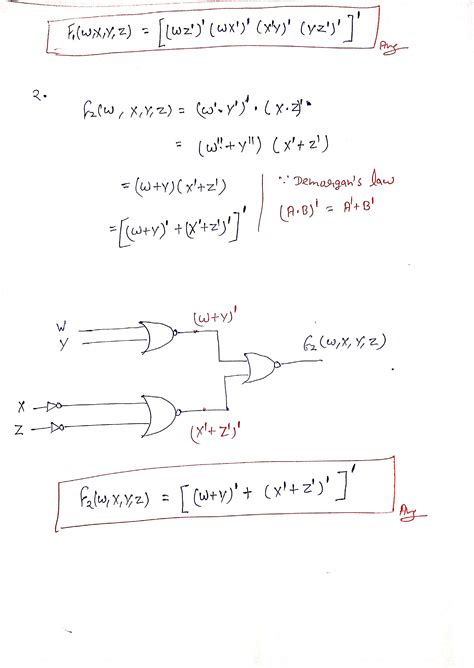 F₁(W,X,Y,Z) = [(WZ')' (WX')' (X'Y)' (YZ')']'
Ans
2.
F₂(W, X, Y, Z) = (W'·Y')' · (X·Z)'
= (W''+Y'') (X'+Z')
= (W+Y)(X'+Z')
∵ Demorgan's law
(A·B)' = A'+B'
= [(W+Y)' + (X'+Z')']'
(W+Y)'
W
Y
F₂(W,X,Y,Z)
X
Z
(X'+Z')'
F₂(W,X,Y,Z) = [(W+Y)' + (X'+Z')']'
Ans